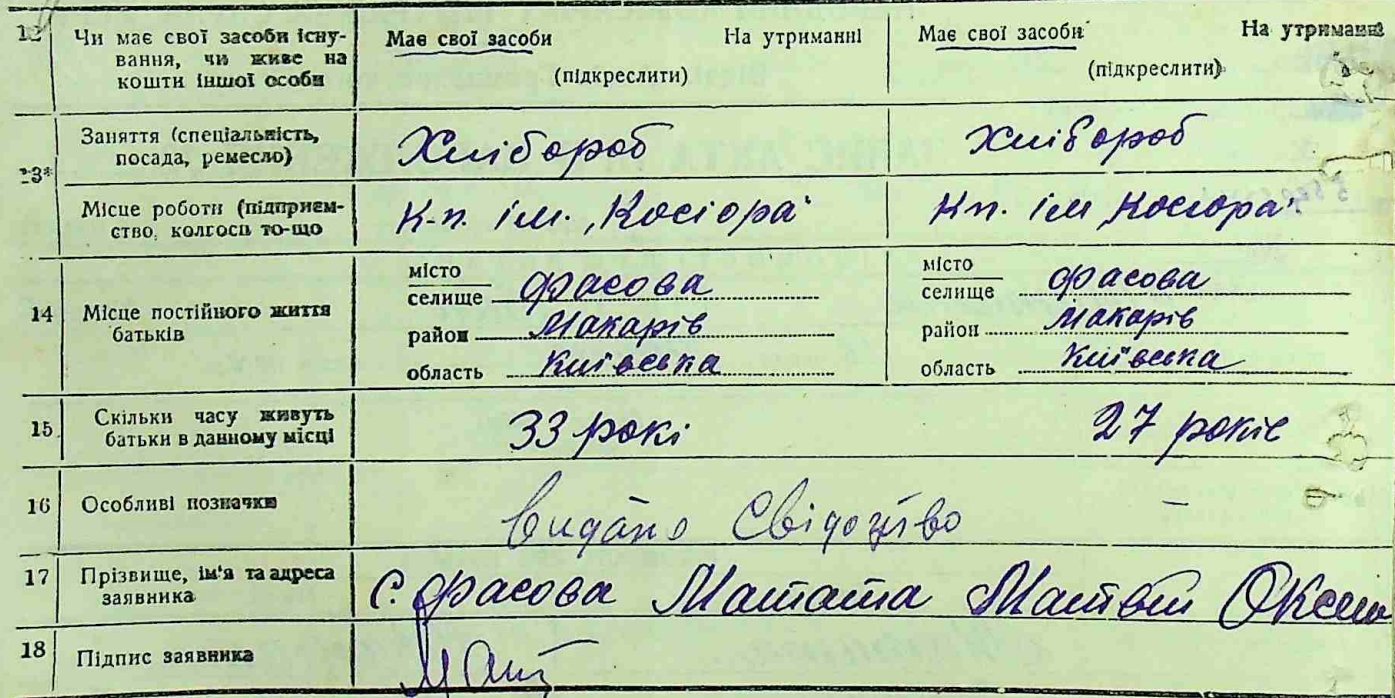 Чи має свої засоби існу-
вання, чи живе на
кошти іншої особи
Має свої засоби На утриманні
(підкреслити)
Має свої засоби На утриманні
(підкреслити)
13*
Заняття (спеціальність,
посада, ремесло)
Хлібороб
Хлібороб
Місце роботи (підприєм-
ство, колгосп то-що
К-п. ім. „Косіора"
К-п. ім „Косіора"
14
Місце постійного життя
батьків
місто
селище Фасова
район Макарів
область Київська
місто
селище Фасова
район Макарів
область Київська
15
Скільки часу живуть
батьки в данному місці
33 рокі
27 років
16
Особливі позначки
Видано Свідоцтво –
17
Прізвище, ім'я та адреса
заявника
С. Фасова Матвій
18
Підпис заявника